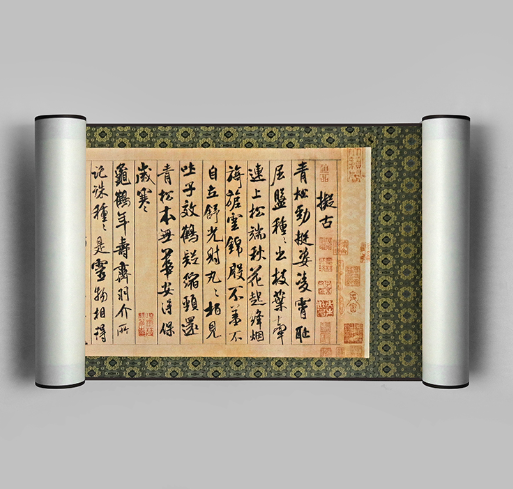 擬古
青松勁挺姿凌霄恥
屈盤種〻出枝葉牽
連上松端秋花起絳烟
旖旎雲錦殷不羞不
自立舒光射丸〻栢見
吐子效鶴疑縮頸還
青松本無華安得保
歲寒
龜鶴年壽齊羽介所
託殊種〻是靈物相得